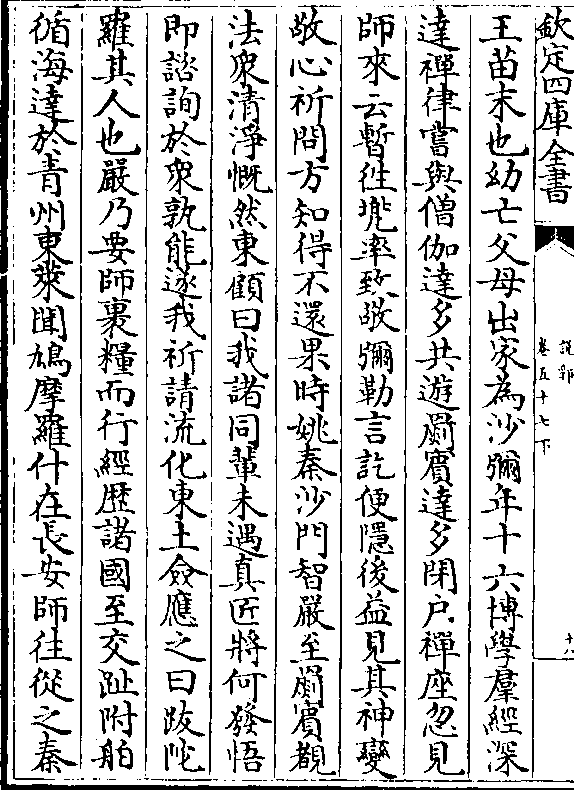 欽定四庫全書
說郛
卷五十七下
十八
王苗末也幼亡父母出家為沙彌年十六博學羣經深
達禪律嘗與僧伽達多共遊罽賓達多閉户禪座忽見
師來云暫徃兠率致敬彌勒言訖便隱後益見其神變
敬心祈問方知得不還果時姚秦沙門智嚴至罽賓覩
法衆清淨慨然東顧曰我諸同輩未遇真匠將何發悟
即諮詢於衆孰能逐我祈請流化東土僉應之曰跋陀
羅其人也嚴乃要師裹糧而行經歷諸國至交趾附舶
循海達於青州東萊聞鳩摩羅什在長安師往從之秦